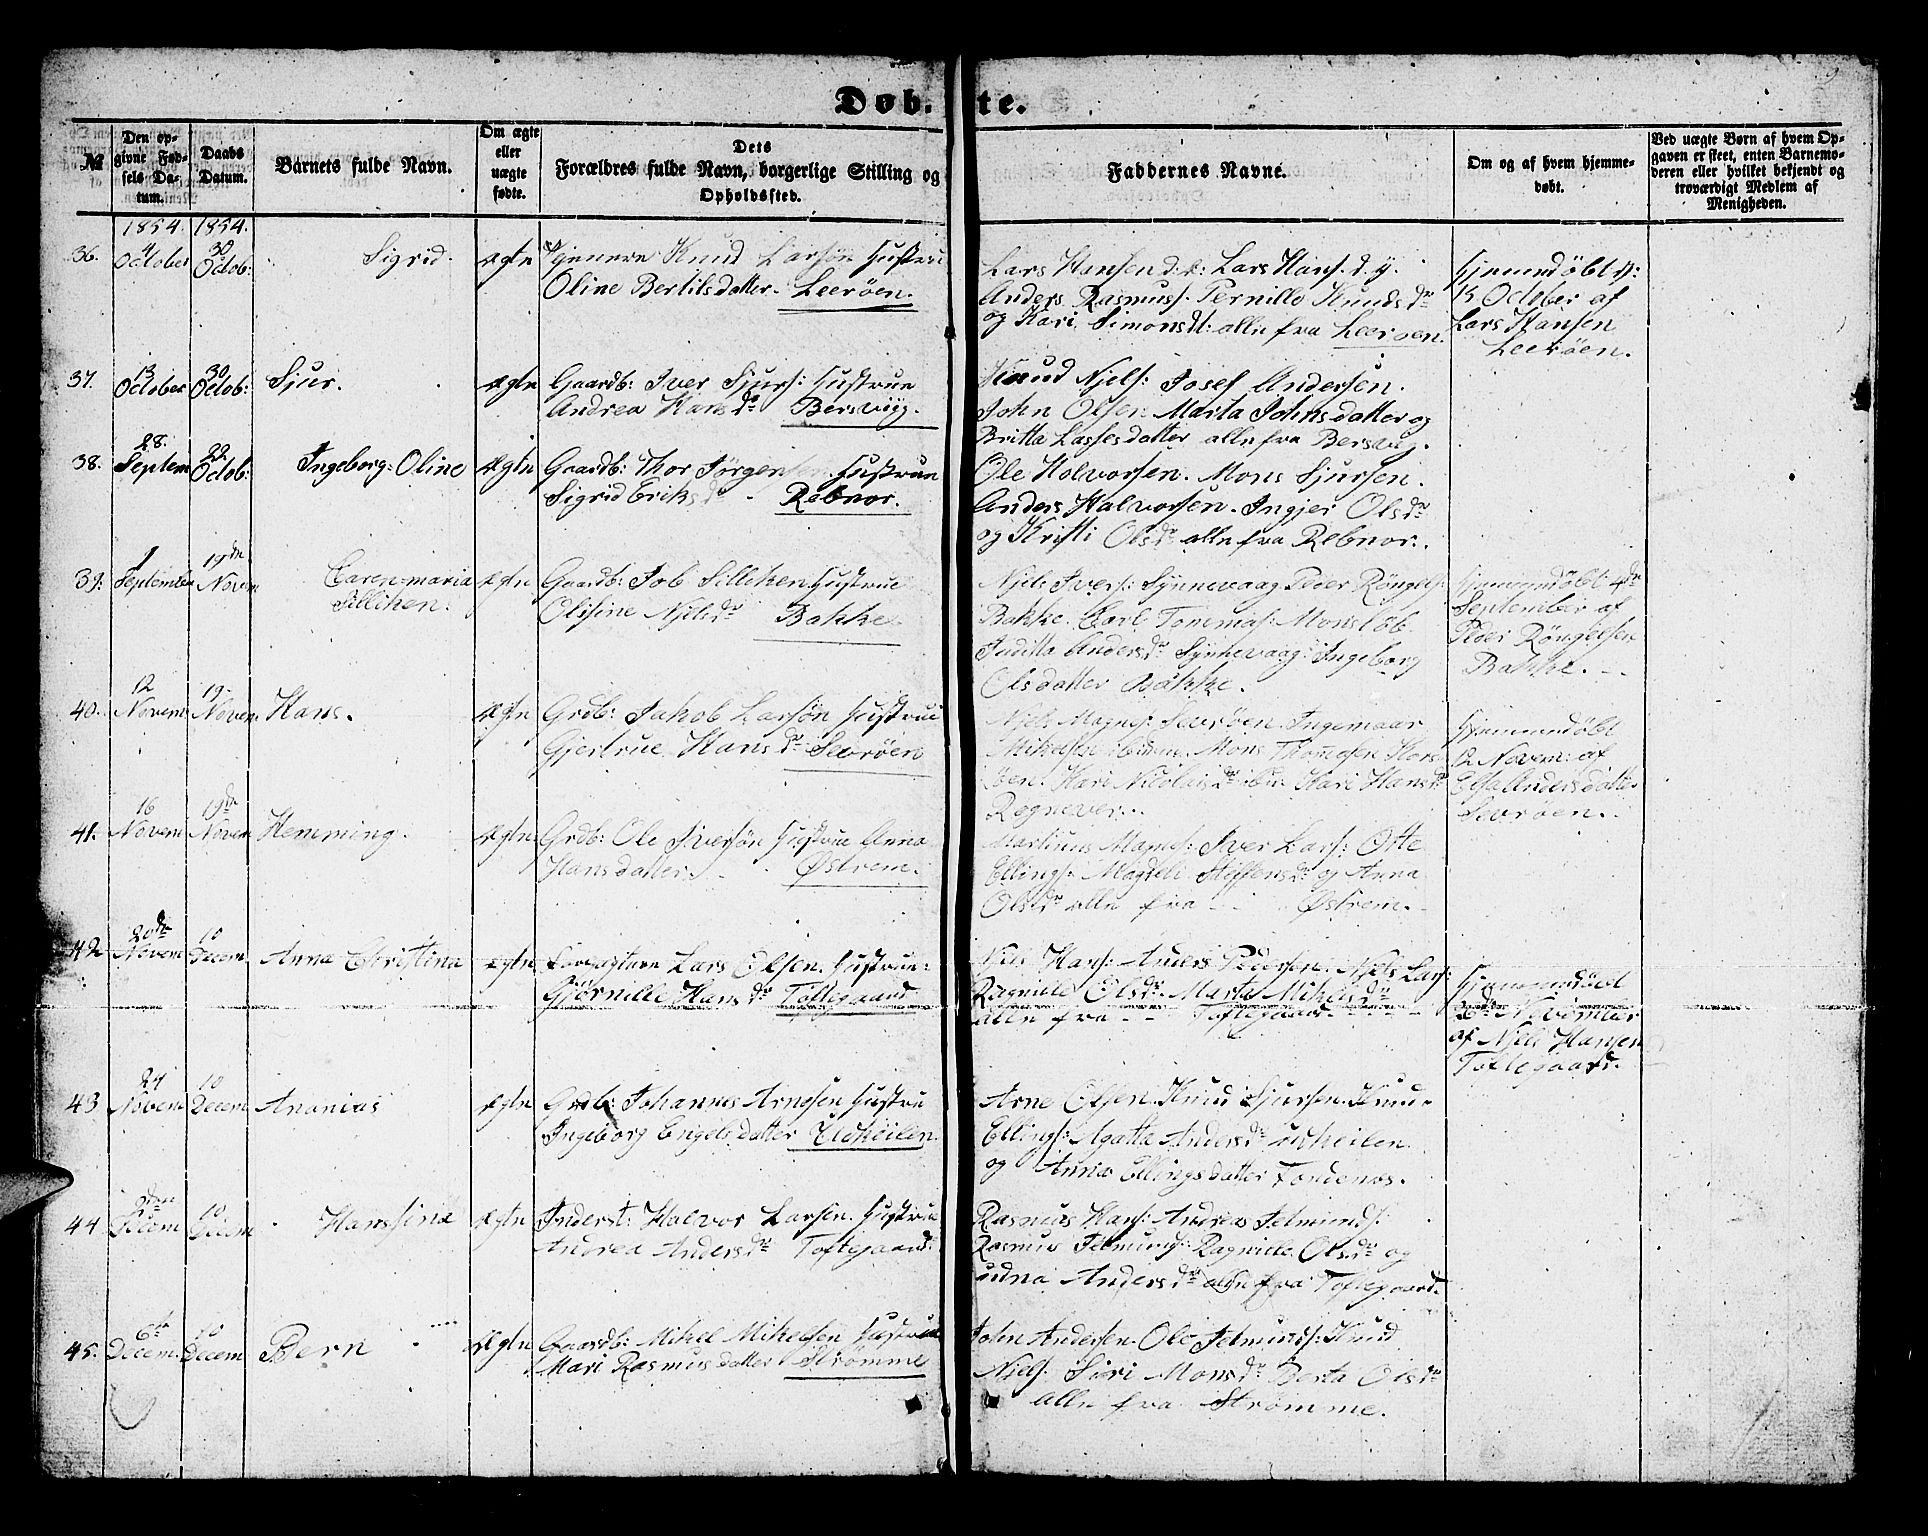 Døb.te.
9
№
Den op-
givne Fød-
sels Da-
tum.
Daabs
Datum.
Barnets fulde Navn.
Om ægte
eller
uægte
fødte.
Dets
Forældres fulde Navn, borgerlige Stilling og
Opholdssted.
Faddernes Navne.
Om og af hvem hjemme-
døbt.
Ved uægte Børn af hvem Op-
gaven er skeet, enten Barnemo-
deren eller hvilket bekjendt og
troværdigt Medlem af
Menigheden.
1854. 1854.
36.
4
October
30
Octob:
Sigrid.
ægte
Knud Larsøn Hustru
Oline Bertilsdatter. Leerøen.
Lars Hansen d: æ: Lars Hans. d. y.
Anders Rasmuss. Pernille Knudsdr
og Kari Simonsdt: alle fra Leerøen.
Hjemmedøbt d:
15 October af
Lars Hansen
Leerøen.
37.
13
October
30
Octob:
Sjur.
ægte
Gaardb: Iver Sjurs: Hustrue
Andrea Hansdr Bersvigg.
Knud Njels: Josef Andersen.
John Olsen. Marta Johnsdatter og
Britta Lassesdatter alle fra Bersvig.
38.
28.
Septem
22
Octob:
Ingeborg Oline
Ægte
Gaardb: Thor Jörgensen Hustrue
Sigrid Eriksdr Rebnor.
Ole Holvorsen. Mons Sjursen.
Anders Halvorsen. Ingjer Olsdr
og Kristi Olsdr alle fra Rebnor.
39.
1
September
19de
Novem
Caren-maria
Sillihen.
ægte
Gaardb: Job Sillihen Hustrue
Olisine Njelsdr Bakke
Njels Ivers: Synnevaag Peder Röngels:
Bakke. Carl Tommas: Monsløb.
Juditta Andersdr Synnevaag. Ingeborg
Olsdatter Bakke.
Hjemmedøbt 4de
September af
Peder Röngelsen
Bakke.
40.
12
Novem:
19.
Novem
Hans.
ægte
Grdb: Jakob Larsøn Hustrue
Gjertrue Hansdr Sevrøen
Njels Magnes: Sevrøen. Ingemaar
Mikelsen ibidm. Mons Thomesen Hors-
øen. Kari Nicolaisdr ibm. Kari Hansdr
Rognever.
Hjemmedøbt
12 Novem: af
Elsa Andersdatter
Sevrøen.
41.
16
Novem
19de
Novem
Hemming.
ægte
Grdb: Ole Iversøn Hustrue Anna
Hansdatter. Østrem.
Martinus Magnes: Iver Lars: Otte
Ellings: Magdeli Steffensdr og Anna
Olsdr alle fra Østrem.
42
20de
Novem
10
Decem
Anna Christina
ægte
Lars Olsen. Hustrue:
Gjörnille Hansdr Toftegaard
Niels Hans: Anders Pedersen. Njels Lars:
Ragnille Olsdr. Marta Mikelsdr
alle fra Toftegaard.
Hjemmedøbt
November
af Njels Hansen
Toftegaard.
43
24
Novem
10
Decem
Ananias
ægte
Grdb: Johannes Arnesen Hustru
Ingeborg Engelsdatter Udheilen.
Arne Olsen. Knud Sjursen. Knud
Ellings: Agatta Andersdr udheilen
og Anna Ellingsdatter Fondenæs.
44
2den
Decem
10
Decem
Hanssine
ægte
Inderst: Halvor Larsen. Hustrue
Andrea Andersdr Toftegaard.
Rasmus Hans: Andreas Jelmunds:
Rasmus Jelmunds: Ragnille Olsdr og
Andersdr alle fra Toftegaard.
45.
6te
Decem.
10
Decem
Bern
Ægte
Gaardb: Mikel Mikelsen Hustrue
Mari Rasmusdatter Strømme
John Andersen. Ole Jelmunds: Knud
Njels. Siri Monsdr Berta Olsdr
alle fra Strømme.